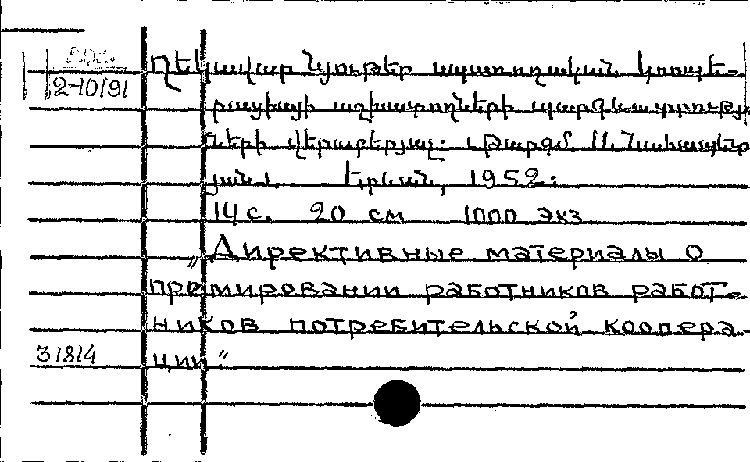 2-10/91
Ղեկավար նյութեր սպառողական կոոպե-
րացիայի աշխատողների պարգևատրությ
ների վերաբերյալ: Թարգմ.
յան։ Երևան, 1952:
14 с. 20 см 1000 экз
„Директивные материалы о
премировании работников работ-
ников потребительской коопера-
31814 ции“